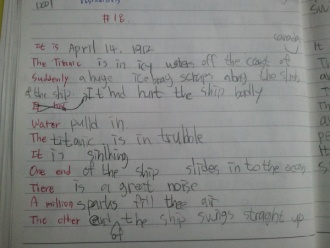 #18.
It is April 14. 1912
The Titanic is in icy waters off the coast of
Suddenly a huge iceberg scraps along the side
of the ship. It had hurt the ship badly
Water pulld in.
The titanic is in trubble
It is sinking
One end of the ship slides in to the ocean
There is a great noise
A million sparks fill the air
The other end of the ship swings straight up